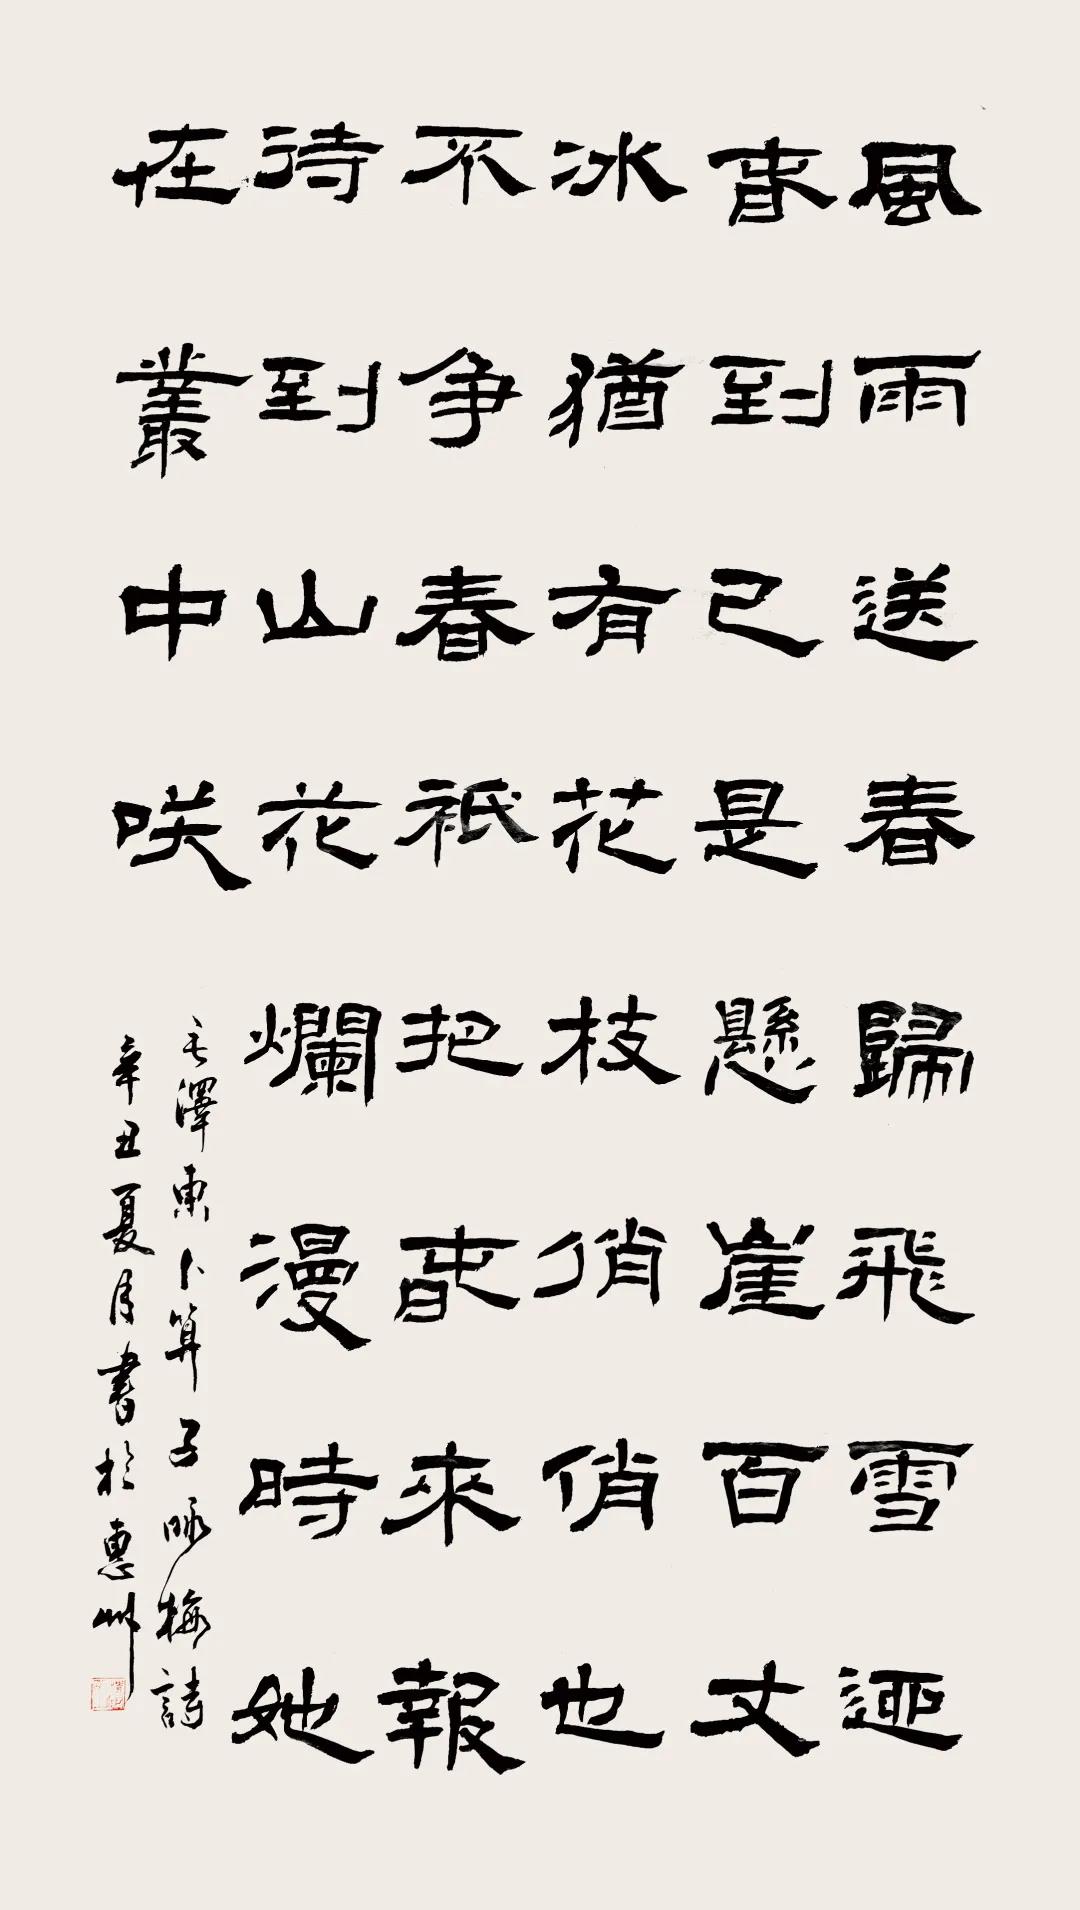 風雨送春歸飛雪迎
春到已是懸崖百丈
冰猶有花枝俏俏也
不争春祇把春來報
待到山花爛漫時她
在叢中咲
毛澤東卜算子咏梅詩
辛丑夏月書於惠州